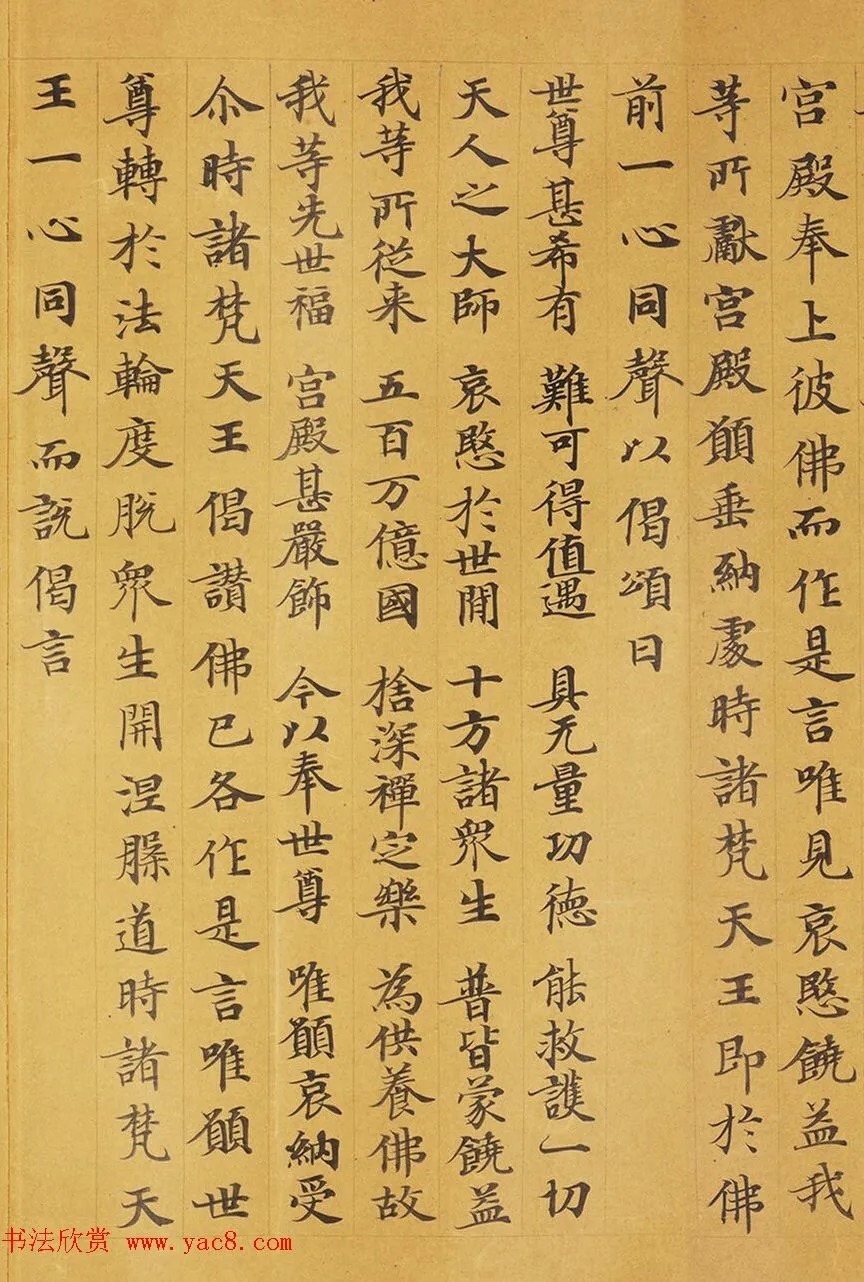 宮殿奉上彼佛而作是言唯見哀愍饒益我
等所獻宮殿願垂納處時諸梵天王即於佛
前一心同聲以偈頌曰
世尊甚希有 難可得值遇 具无量功德 能救護一切
天人之大師 哀愍於世間 十方諸眾生 普皆蒙饒益
我等所從来 五百万億國 捨深禪定樂 為供養佛故
我等先世福 宮殿甚嚴飾 今以奉世尊 唯願哀納受
尒時諸梵天王偈讃佛已各作是言唯願世
尊轉於法輪度脫眾生開涅槃道時諸梵天
王一心同聲而說偈言
书法欣赏 www.yac8.com